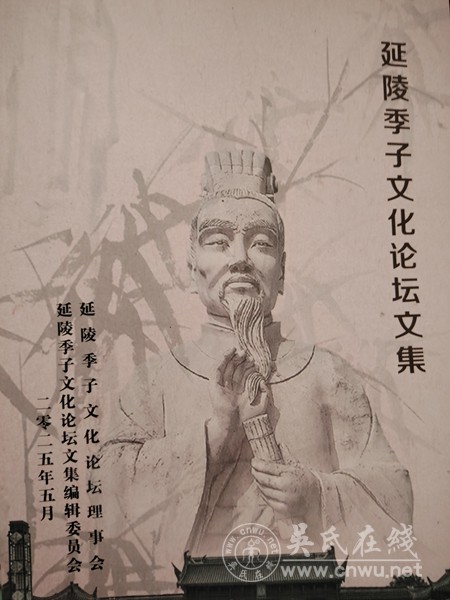 延陵季子文化论坛文集
延陵季子文化论坛理事会
延陵季子文化论坛文集编辑委员会
二零二五年五月
吴氏在线
www.cnwu.net